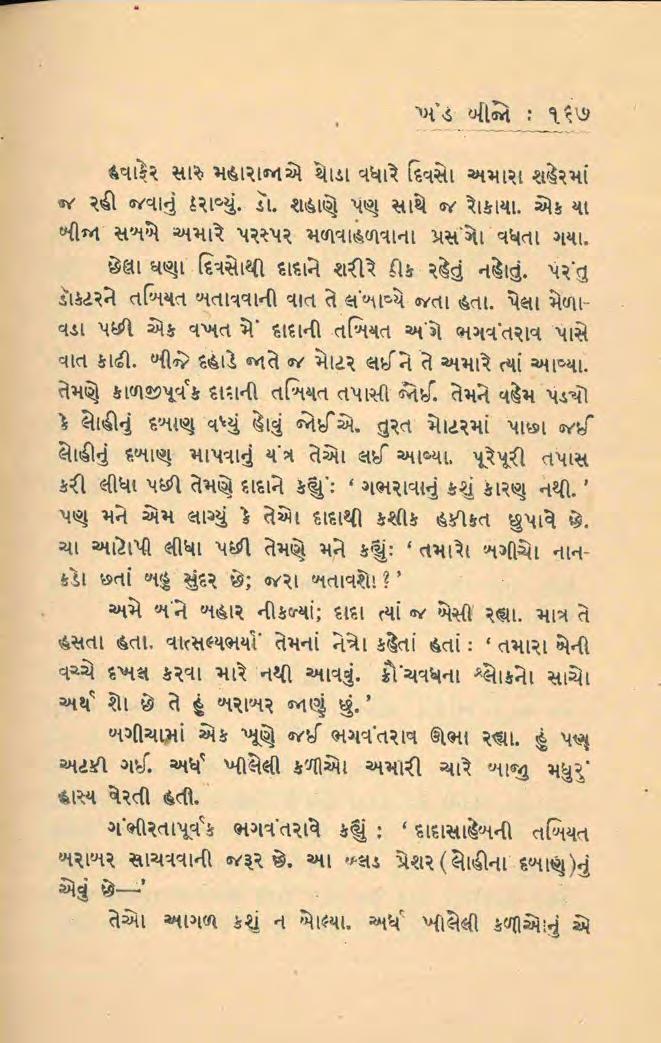 ખંડ બીજો : ૧૬૭
હવાફેર સારુ મહારાજાએ થોડા વધારે દિવસો અમારા શહેરમાં
જ રહી જવાનું ઠરાવ્યું. ડૉ. શહાણે પણ સાથે જ રોકાયા. એક યા
બીજા સબબે અમારે પરસ્પર મળવાહળવાના પ્રસંગો વધતા ગયા.
છેલા ઘણા દિવસોથી દાદાને શરીરે ઠીક રહેતું નહોતું. પરંતુ
ડૉક્ટરને તબિયત બતાવવાની વાત તે લંબાવ્યે જતા હતા. પેલા મેળા-
વડા પછી એક વખત મેં દાદાની તબિયત અંગે ભગવંતરાવ પાસે
વાત કાઢી. બીજે દહાડે જાતે જ મોટર લઈને તે અમારે ત્યાં આવ્યા.
તેમણે કાળજીપૂર્વક દાદાની તબિયત તપાસી જોઈ. તેમને વહેમ પડ્યો
કે લોહીનું દબાણ વધ્યું હોવું જોઈએ. તુરત મોટરમાં પાછા જઈ
લોહીનું દબાણ માપવાનું યંત્ર તેઓ લઈ આવ્યા. પૂરેપૂરી તપાસ
કરી લીધા પછી તેમણે દાદાને કહ્યું: ‘ ગભરાવાનું કશું કારણ નથી. ’
પણ મને એમ લાગ્યું કે તેઓ દાદાથી કશીક હકીકત છુપાવે છે.
ચા આટોપી લીધા પછી તેમણે મને કહ્યું: ‘ તમારો બગીચો નાન-
કડો છતાં બહુ સુંદર છે; જરા બતાવશો!?’
અમે બંને બહાર નીકળ્યાં; દાદા ત્યાં જ બેસી રહ્યા. માત્ર તે
હસતા હતા. વાત્સલ્યભર્યાં તેમનાં નેત્રો કહેતાં હતાં : ‘ તમારા બેની
વચ્ચે દખલ કરવા મારે નથી આવવું. ક્રૌંચવધના શ્લોકનો સાચો
અર્થ શો છે તે હું બરાબર જાણું છું.’
બગીચામાં એક ખૂણે જઈ ભગવંતરાવ ઊભા રહ્યા. હું પણ
અટકી ગઈ. અર્ધ ખીલેલી કળીઓ અમારી ચારે બાજુ મધુરું
હાસ્ય વેરતી હતી.
ગંભીરતાપૂર્વક ભગવંતરાવે કહ્યું : ‘ દાદાસાહેબની તબિયત
બરાબર સાચવવાની જરૂર છે. આ બ્લડ પ્રેશર (લોહીના દબાણ)નું
એવું છે—’
તેઓ આગળ કશું ન બોલ્યા. અર્ધ ખીલેલી કળીઓનું એ